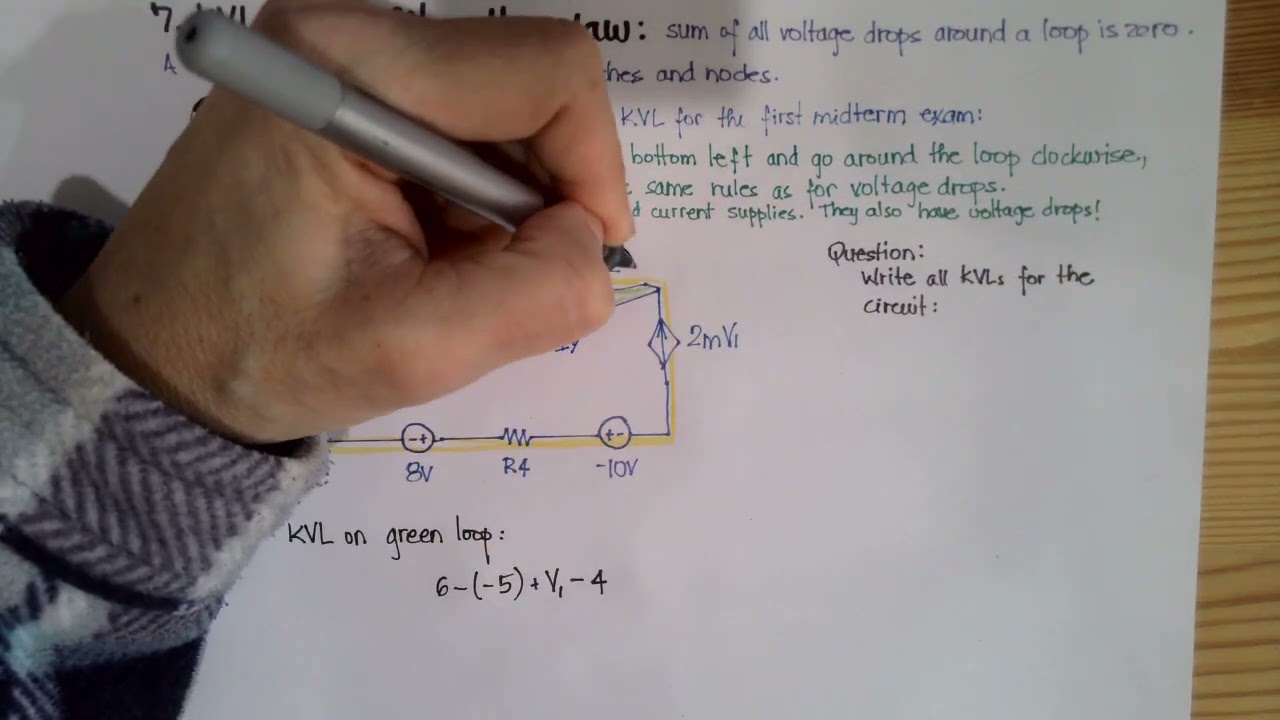 7. KVL law: sum of all voltage drops around a loop is zero.
A and nodes.
KVL for the first midterm exam:
bottom left and go around the loop clockwise,
same rules as for voltage drops.
current supplies. They also have voltage drops!
Question:
Write all KVLs for the
circuit:
2mV₁
-+ +-
8V R4 -10V
KVL on green loop:
6-(-5)+V₁-4